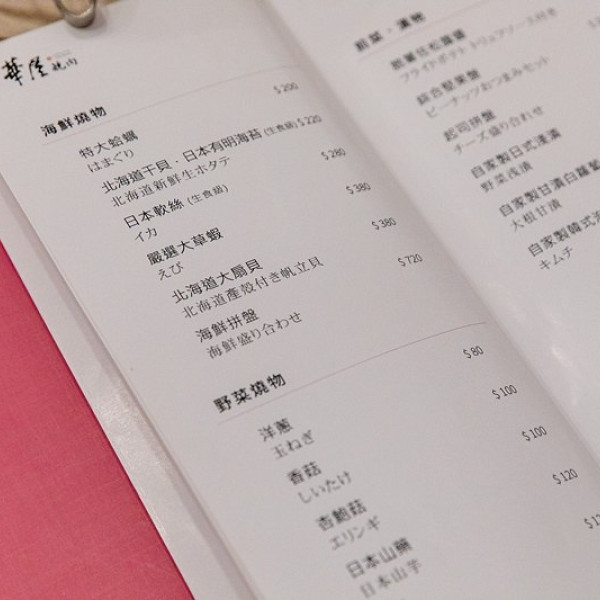 華屋 燒肉
海鮮燒物
特大蛤蠣 $200
はまぐり
北海道干貝・日本有明海苔(生食級) $220
北海道新鮮生ホタテ
日本軟絲(生食級) $280
イカ
嚴選大草蝦 $380
えび
北海道大扇貝 $380
北海道產殼付き帆立貝
海鮮拼盤 $720
海鮮盛り合わせ
野菜燒物
洋蔥 $80
玉ねぎ
香菇 $100
しいたけ
杏鮑菇 $100
エリンギ
日本山藥 $120
日本山芋
前菜・漬物
脆薯佐松露醬
フライドポテト トリュフソース付き
綜合堅果盤
ピーナッツおつまみセット
起司拼盤
チーズ盛り合わせ
自家製日式淺漬
野菜浅漬
自家製甘漬白蘿蔔
大根甘漬
自家製韓式泡
キムチ